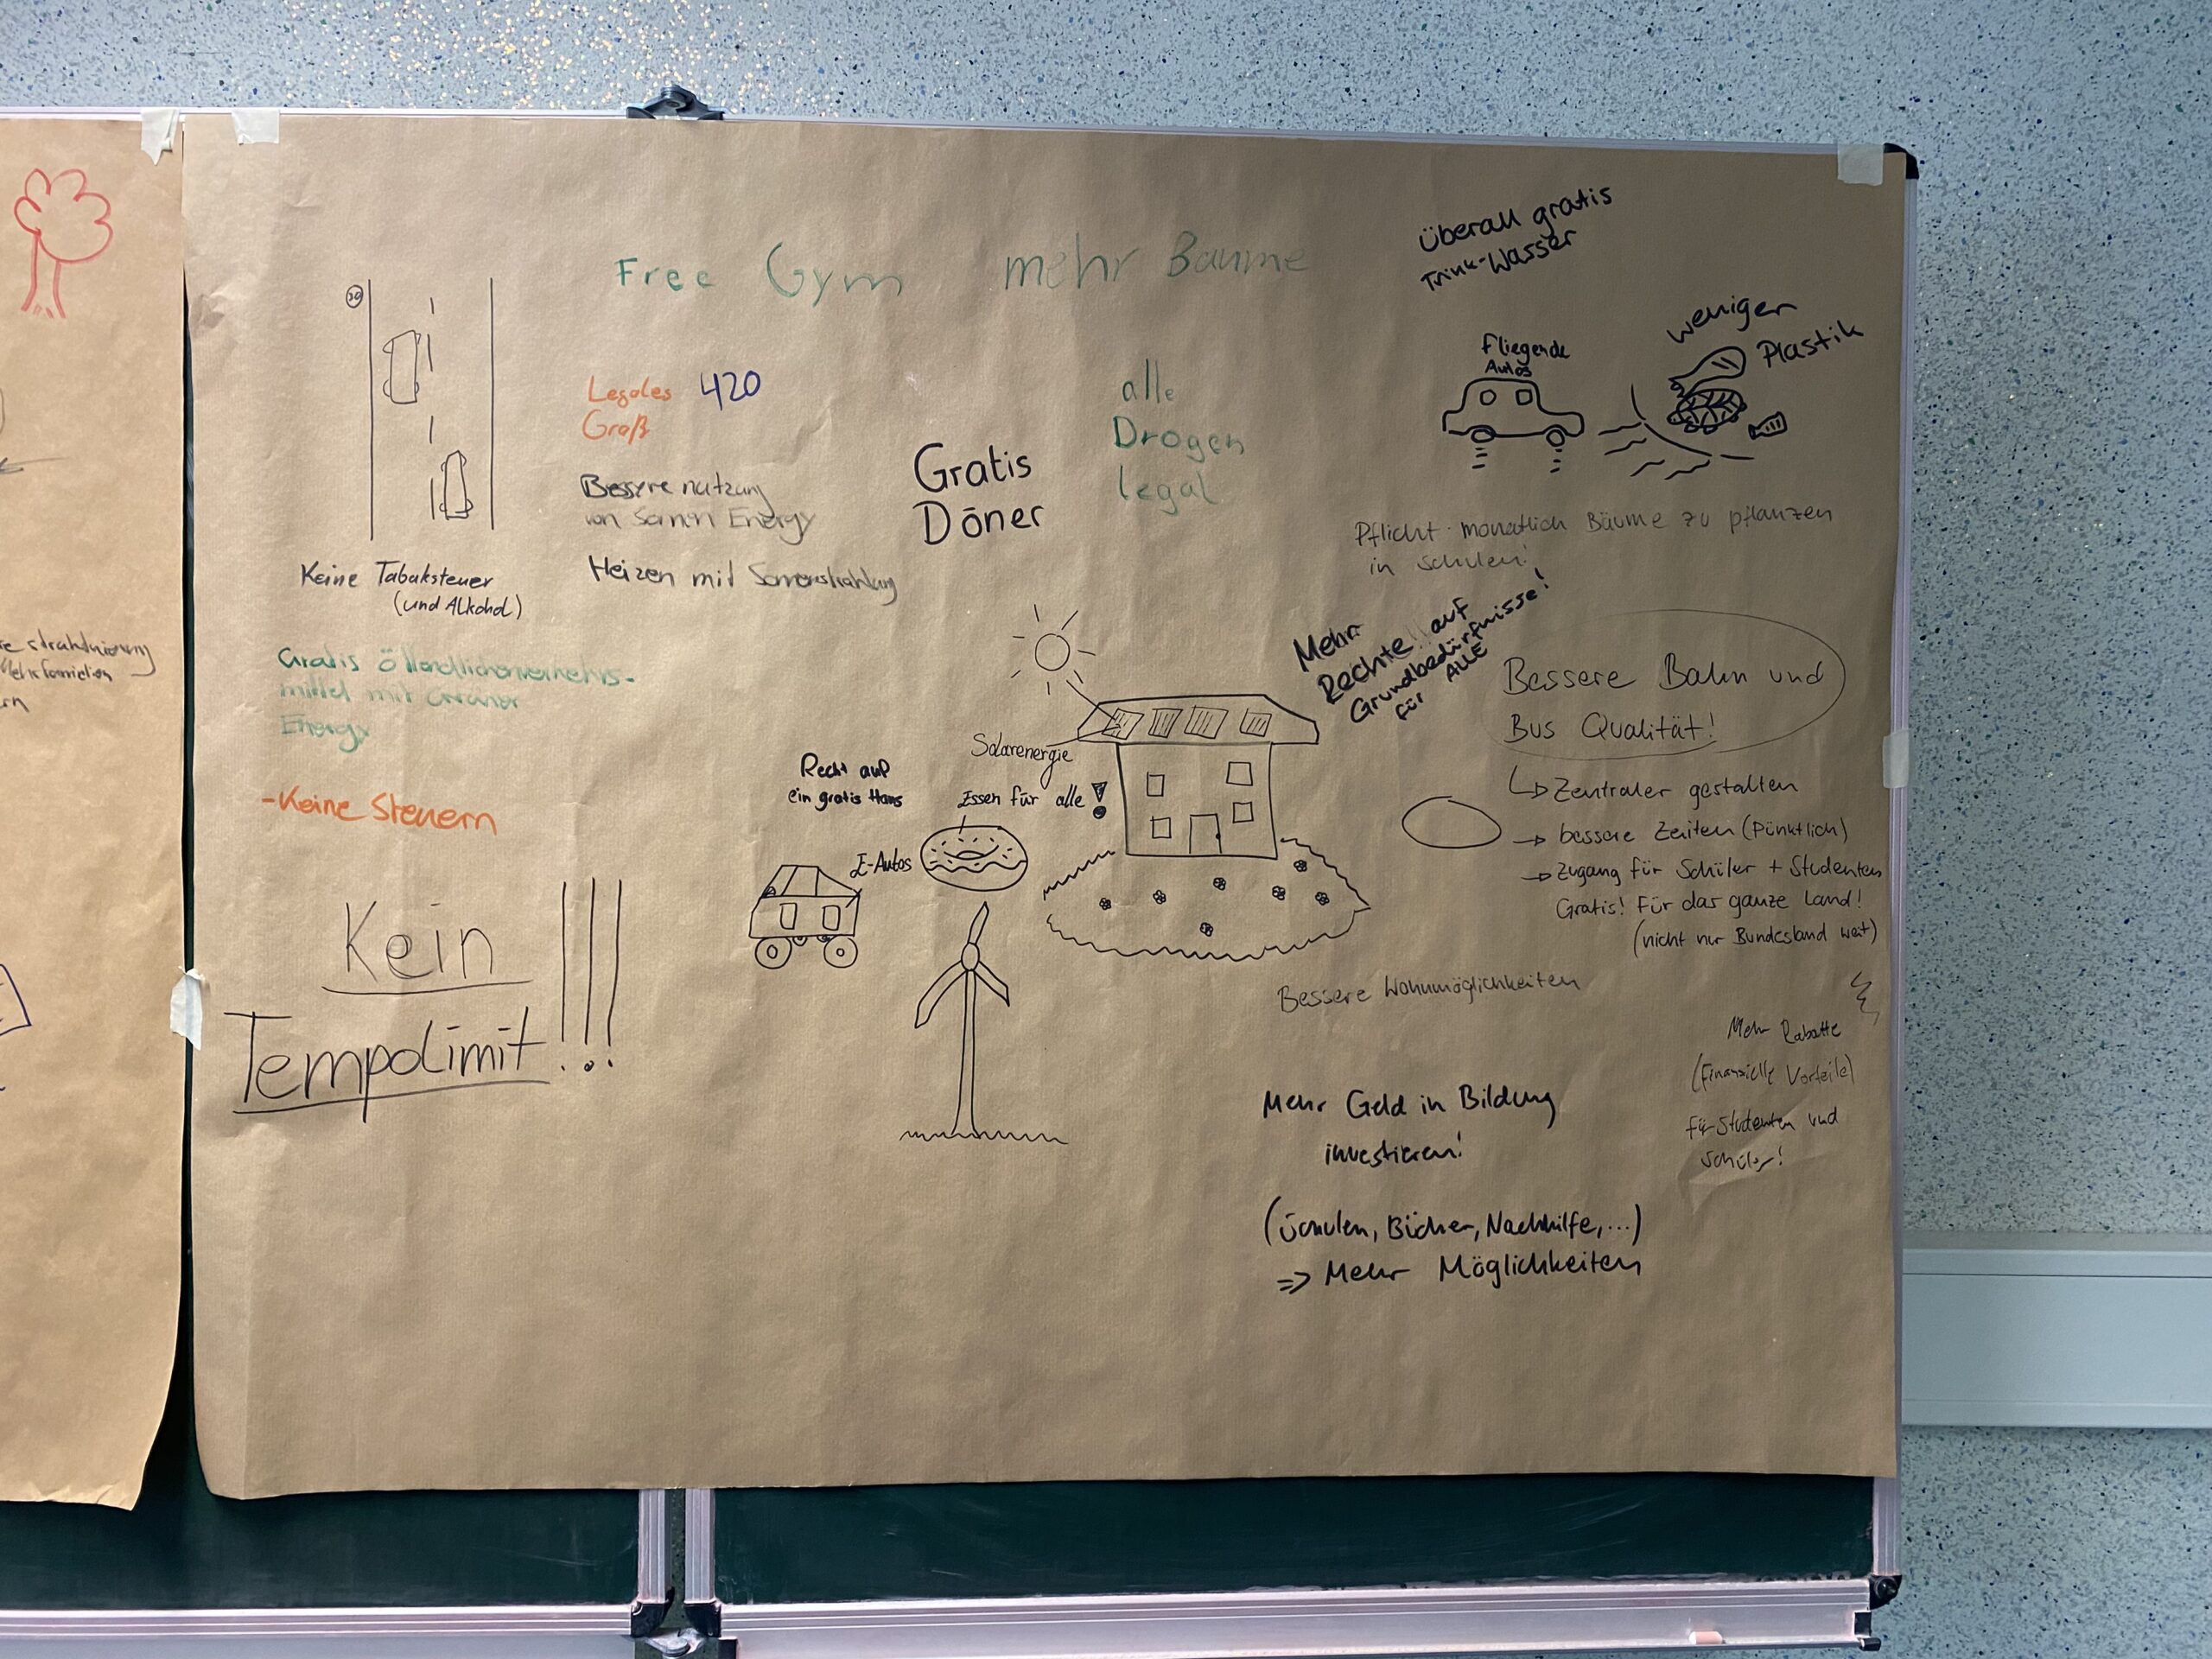 Free Gym
mehr Bäume
Überall gratis
Trink-Wasser
30
Legales 420
Graß
alle
Drogen
legal
Fliegende
Autos
weniger
Plastik
Bessere nutzung
von Energy
Gratis
Döner
Pflicht monatlich Bäume zu pflanzen
in Schulen!
Keine Tabaksteuer
(und Alkohol)
Heizen mit
Mehr
Rechte auf
Grundbedürfnisse!
für ALLE
Gratis
mittel mit
Energy
Bessere Bahn und
Bus Qualität!
↳ Zentraler gestalten
→ bessere Zeiten (Pünktlich)
→ Zugang für Schüler + Studenten
Gratis! Für das ganze Land!
(nicht nur Bundesland weit)
Solarenergie
Recht auf
ein gratis Haus
Essen für alle!
E-Autos
-Keine Steuern
Kein
Tempolimit!!!
Bessere Wohnmöglichkeiten
Mehr Rabatte
(Finanzielle Vorteile)
für Studenten und
Schüler!
Mehr Geld in Bildung
investieren!
(Schulen, Bücher, Nachhilfe,...)
=> Mehr Möglichkeiten